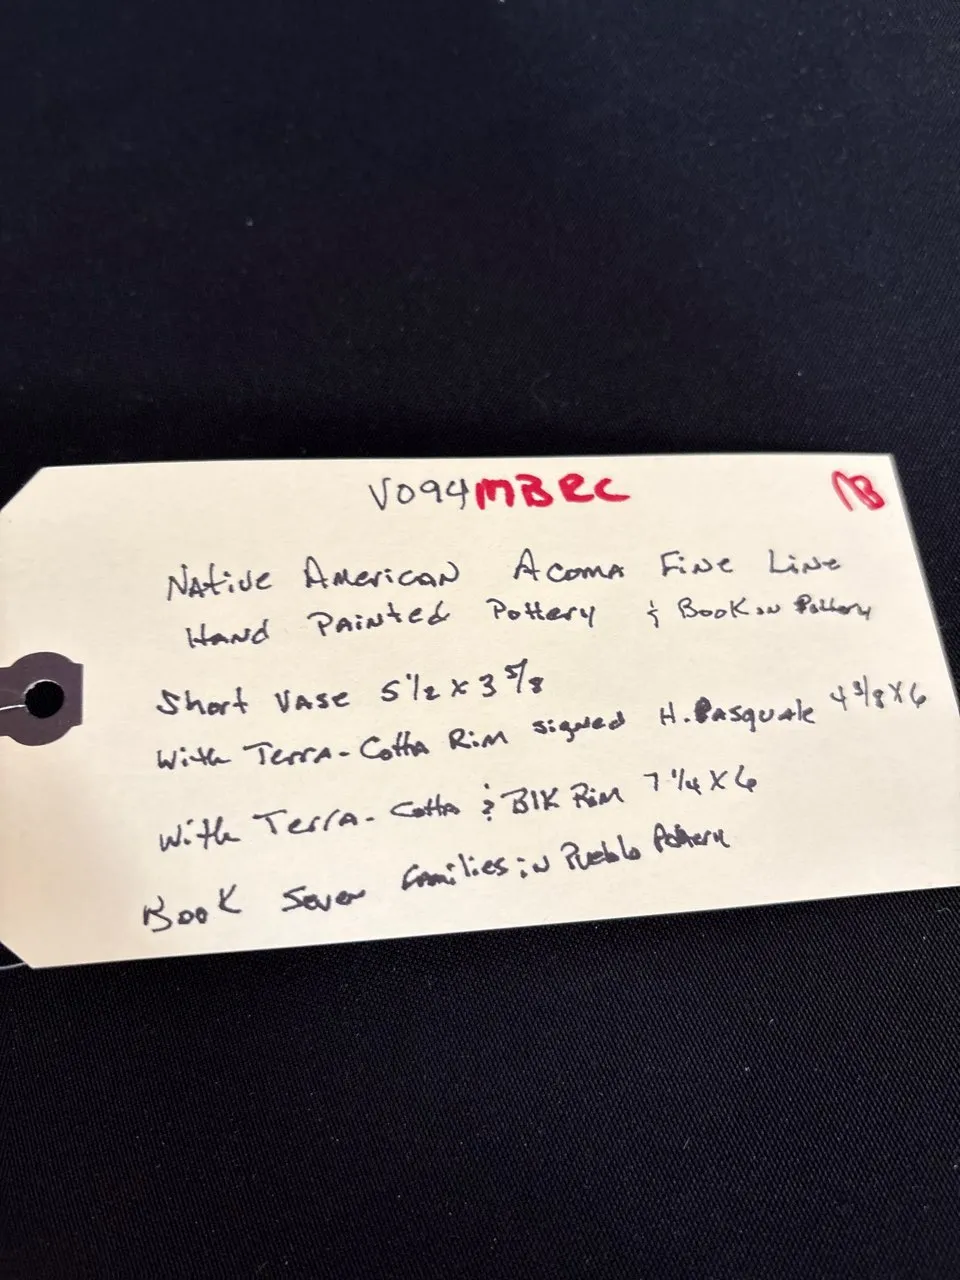 V094MBRC NB
Native American Acoma Fine Line
Hand Painted Pottery & Book on Pottery
Short Vase 5 1/2 x 3 5/8
With Terra-Cotta Rim signed H. Pasquale 4 3/8 x 6
With Terra-Cotta & Blk Rim 7 1/4 x 6
Book Seven Families in Pueblo Pottery